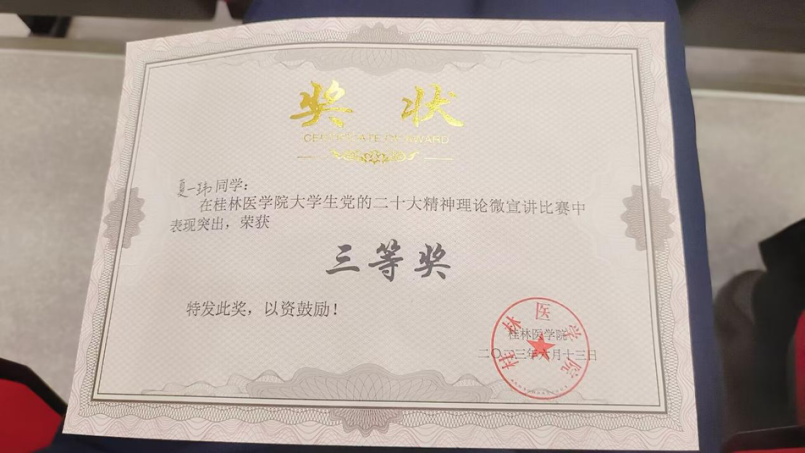 奖状
CERTIFICATE OF AWARD
夏一玮同学：
在桂林医学院大学生党的二十大精神理论微宣讲比赛中
表现突出，荣获
三等奖
特发此奖，以资鼓励！
桂林医学院
桂林医学院
二〇二三年六月十三日